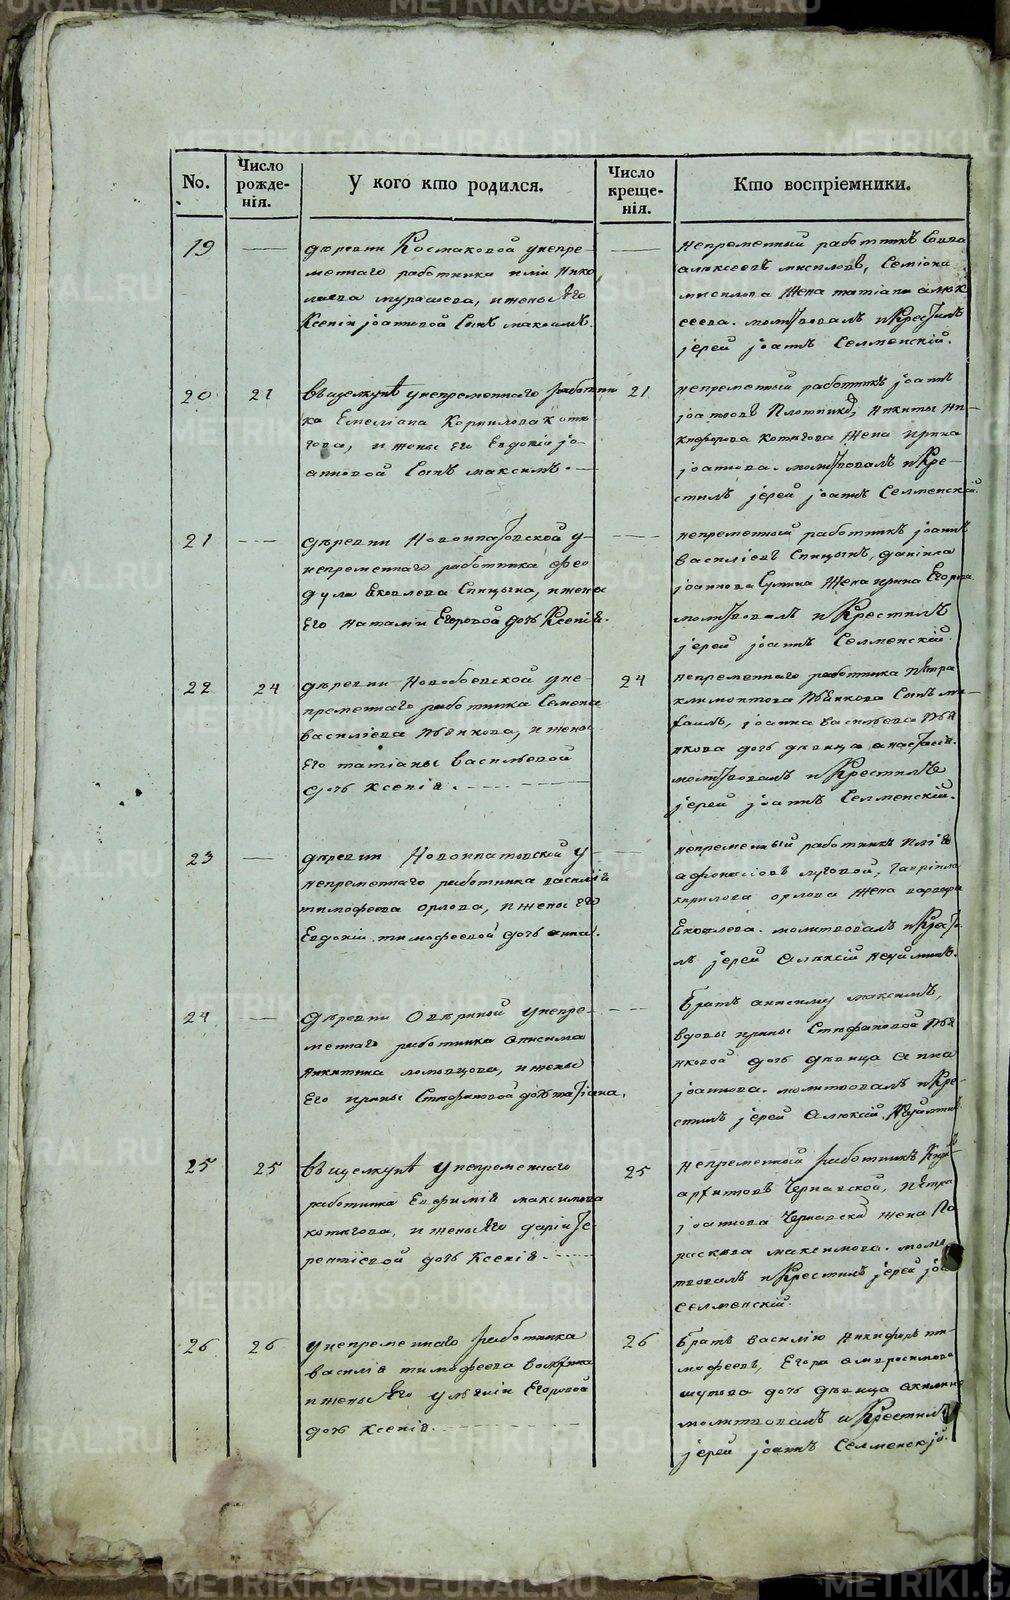 No.
Число рожде- нія.
У кого кто родился.
Число креще- нія.
Кто воспріемники.
19
деревни Космаковой унепре-
меннаго работника иліи Нико
лаева мурашева, и жены Его
Ксеніи іоанновой Сынъ максимъ.
непременный работникъ Савва
алексеевъ мисиловъ, Семіона
мисилова Жена татіана алек
сеева. молитвовалъ и Крестилъ
іерей іоаннъ Селменскій.
20
21
въ щелкунѣ унепременнаго работни
ка Емеліана Корнилова котю
гова, и жены Его Евдокіи іо-
анновой Сынъ максимъ.
21
непременный работникъ іоаннъ
іоанновъ Плотниковъ, Никиты Ни-
кифорова котюгова Жена ирина
іоаннова. молитвовалъ и Кре-
стилъ іерей іоаннъ Селменскій.
21
деревни Новоипатовской у-
непременнаго работника фео
дула Яковлева Спицына, и жены
Его наталіи Егоровой дочь Ксенія.
непременный работникъ іоаннъ
василіевъ Спицынъ, даніила
іоаннова Жена ирина Егорова
молитвовалъ и Крестилъ
іерей іоаннъ Селменскій.
22
24
деревни Новобоевской уне-
пременнаго работника Семена
василіева пьянкова, и жены
Его татіаны васильевой
дочь Ксенія.
24
непременнаго работника петра
климонтова пьянкова Сынъ ми-
хаилъ, іоанна васильева пья
нкова дочь девица анастасія.
молитвовалъ и Крестилъ
іерей іоаннъ Селменскій.
23
деревни Новоипатовской у
непременнаго работника василія
тимофеева орлова, и жены Его
Евдокіи тимофеевой дочь анна.
непременный работникъ илія
афонасіевъ луговой, гавріила
кирилова орлова жена варвара
Яковлева. молитвовалъ и Крести
лъ іерей Алексій
24
деревни Озерной унепре-
меннаго работника Анисима
Никитина ломовцова, и жены
Его ирины Стефановой дочь татіана.
Братъ анисиму максимъ,
вдовы ирины Стефановой пья
нковой дочь девица Анна
іоаннова. молитвовалъ и Кре-
стилъ іерей Алексій
25
25
въ щелкунѣ унепременнаго
работника Евфимія максимова
котюгова, и жены Его даріи Те
рентіевой дочь Ксенія.
25
непременный работникъ
архиповъ Чернавской, петра
іоаннова жена Па
раскева максимова. моли
твовалъ и Крестилъ іерей іоа
Селменскій.
26
26
унепременнаго работника
василія тимофеева
и жены Его Егоровой
дочь Ксенія.
26
Братъ василію Никифоръ ти-
мофеевъ, Егора амвросимова
шупова дочь девица акилина
молитвовалъ и Крестилъ
іерей іоаннъ Селменскій.
METRIKI.GASO-URAL.RU